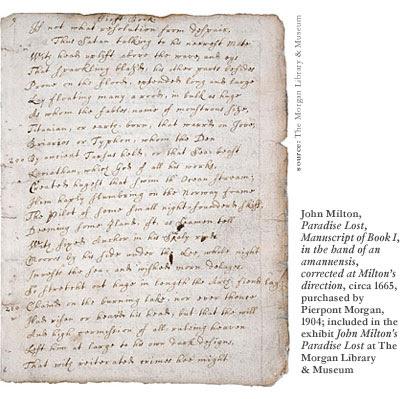 First Book
If not what resolution from despair,
Thus Satan talking to his neerest Mate
With head up lift above the wave, and eye
That sparkling blaz'd, his other parts besides
Prone on the flood, extended long and large
Lay floating many a rood, in bulk as huge
As whom the fables name of monstrous size,
Titanian, or earth-born, that warrd on Jove,
Briarios or Typhon, whom the Den
200 By ancient Tarsus held, or that Sea-beast
Leviathan, which God of all his works
Created hugest that swim th' Ocean stream;
Him haply slumbring on the Norway foame
The Pilot of some small night-founderd Skiff,
Deeming some Iland, oft, as Seamen tell
With fixed Anchor in his skaly rind
Moores by his side under the Lee while night
Invests the sea, and wished morn delayes.
So stretcht out huge in length the Arch-fiend lay
210 Chaind on the burning lake, nor ever thence
Had risen or heav'd his head, but that the will
And high permission of all ruling heaven
Left him at large to his own dark designs,
That with reiterated crimes hee might
source: The Morgan Library & Museum
John Milton,
Paradise Lost,
Manuscript of Book I,
in the hand of an
amanuensis,
corrected at Milton's
direction, circa 1665,
purchased by
Pierpont Morgan,
1904; included in the
exhibit John Milton's
Paradise Lost at The
Morgan Library
& Museum